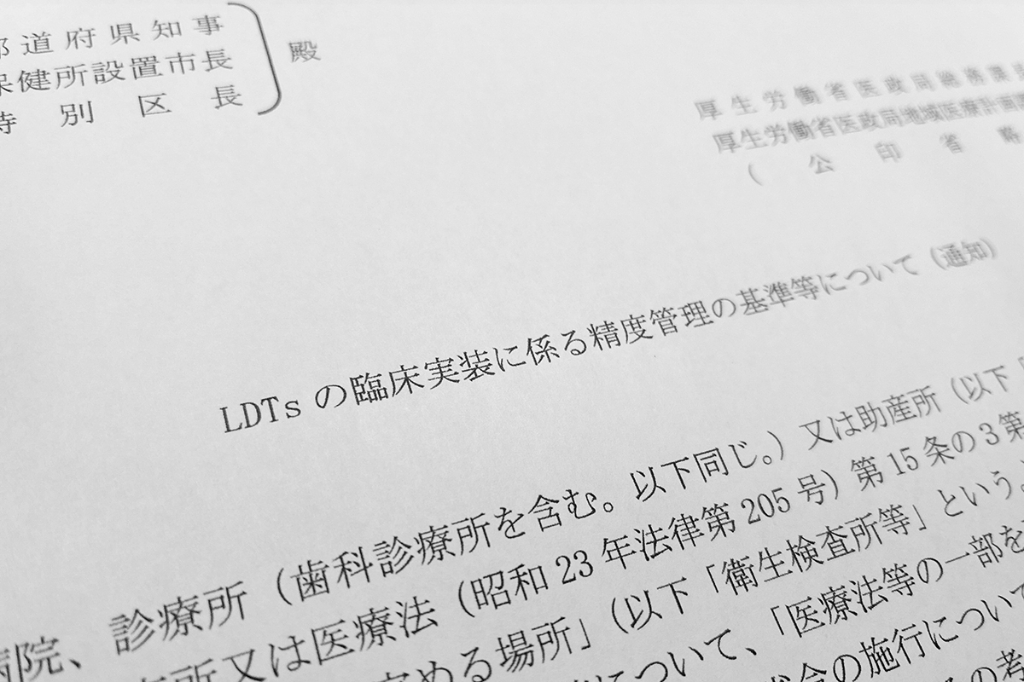 道府県知事
保健所設置市長 殿
特別区長
厚生労働省医政局総務課
厚生労働省医政局地域医療計画
(公印省略
LDTsの臨床実装に係る精度管理の基準等について(通知)
病院、診療所(歯科診療所を含む。以下同じ。)又は助産所(以下
所又は医療法(昭和23年法律第205号)第15条の3第
める場所」(以下「衛生検査所等」という。
について、「医療法等の一部を
の施行について